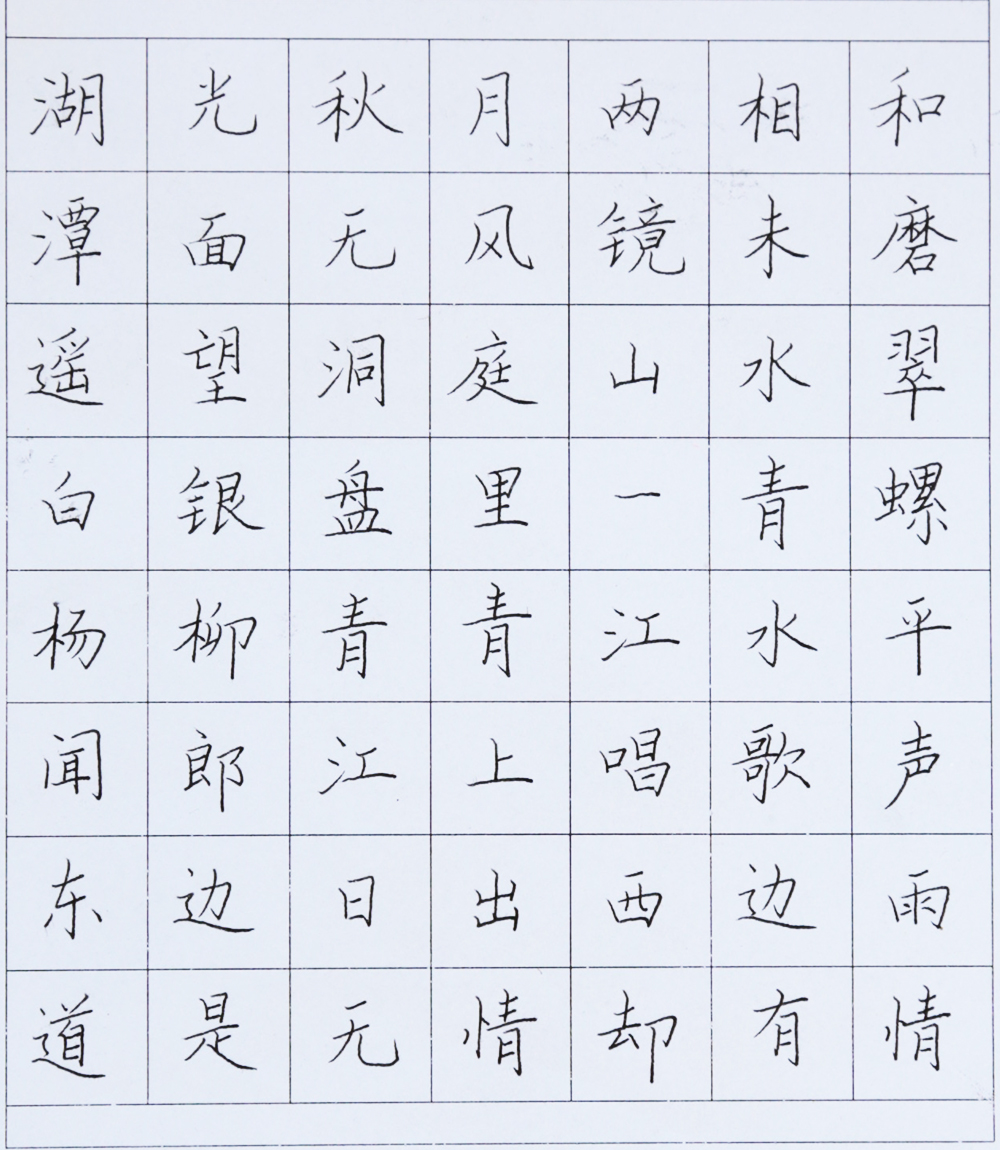 湖光秋月两相和
潭面无风镜未磨
遥望洞庭山水翠
白银盘里一青螺
杨柳青青江水平
闻郎江上唱歌声
东边日出西边雨
道是无情却有情